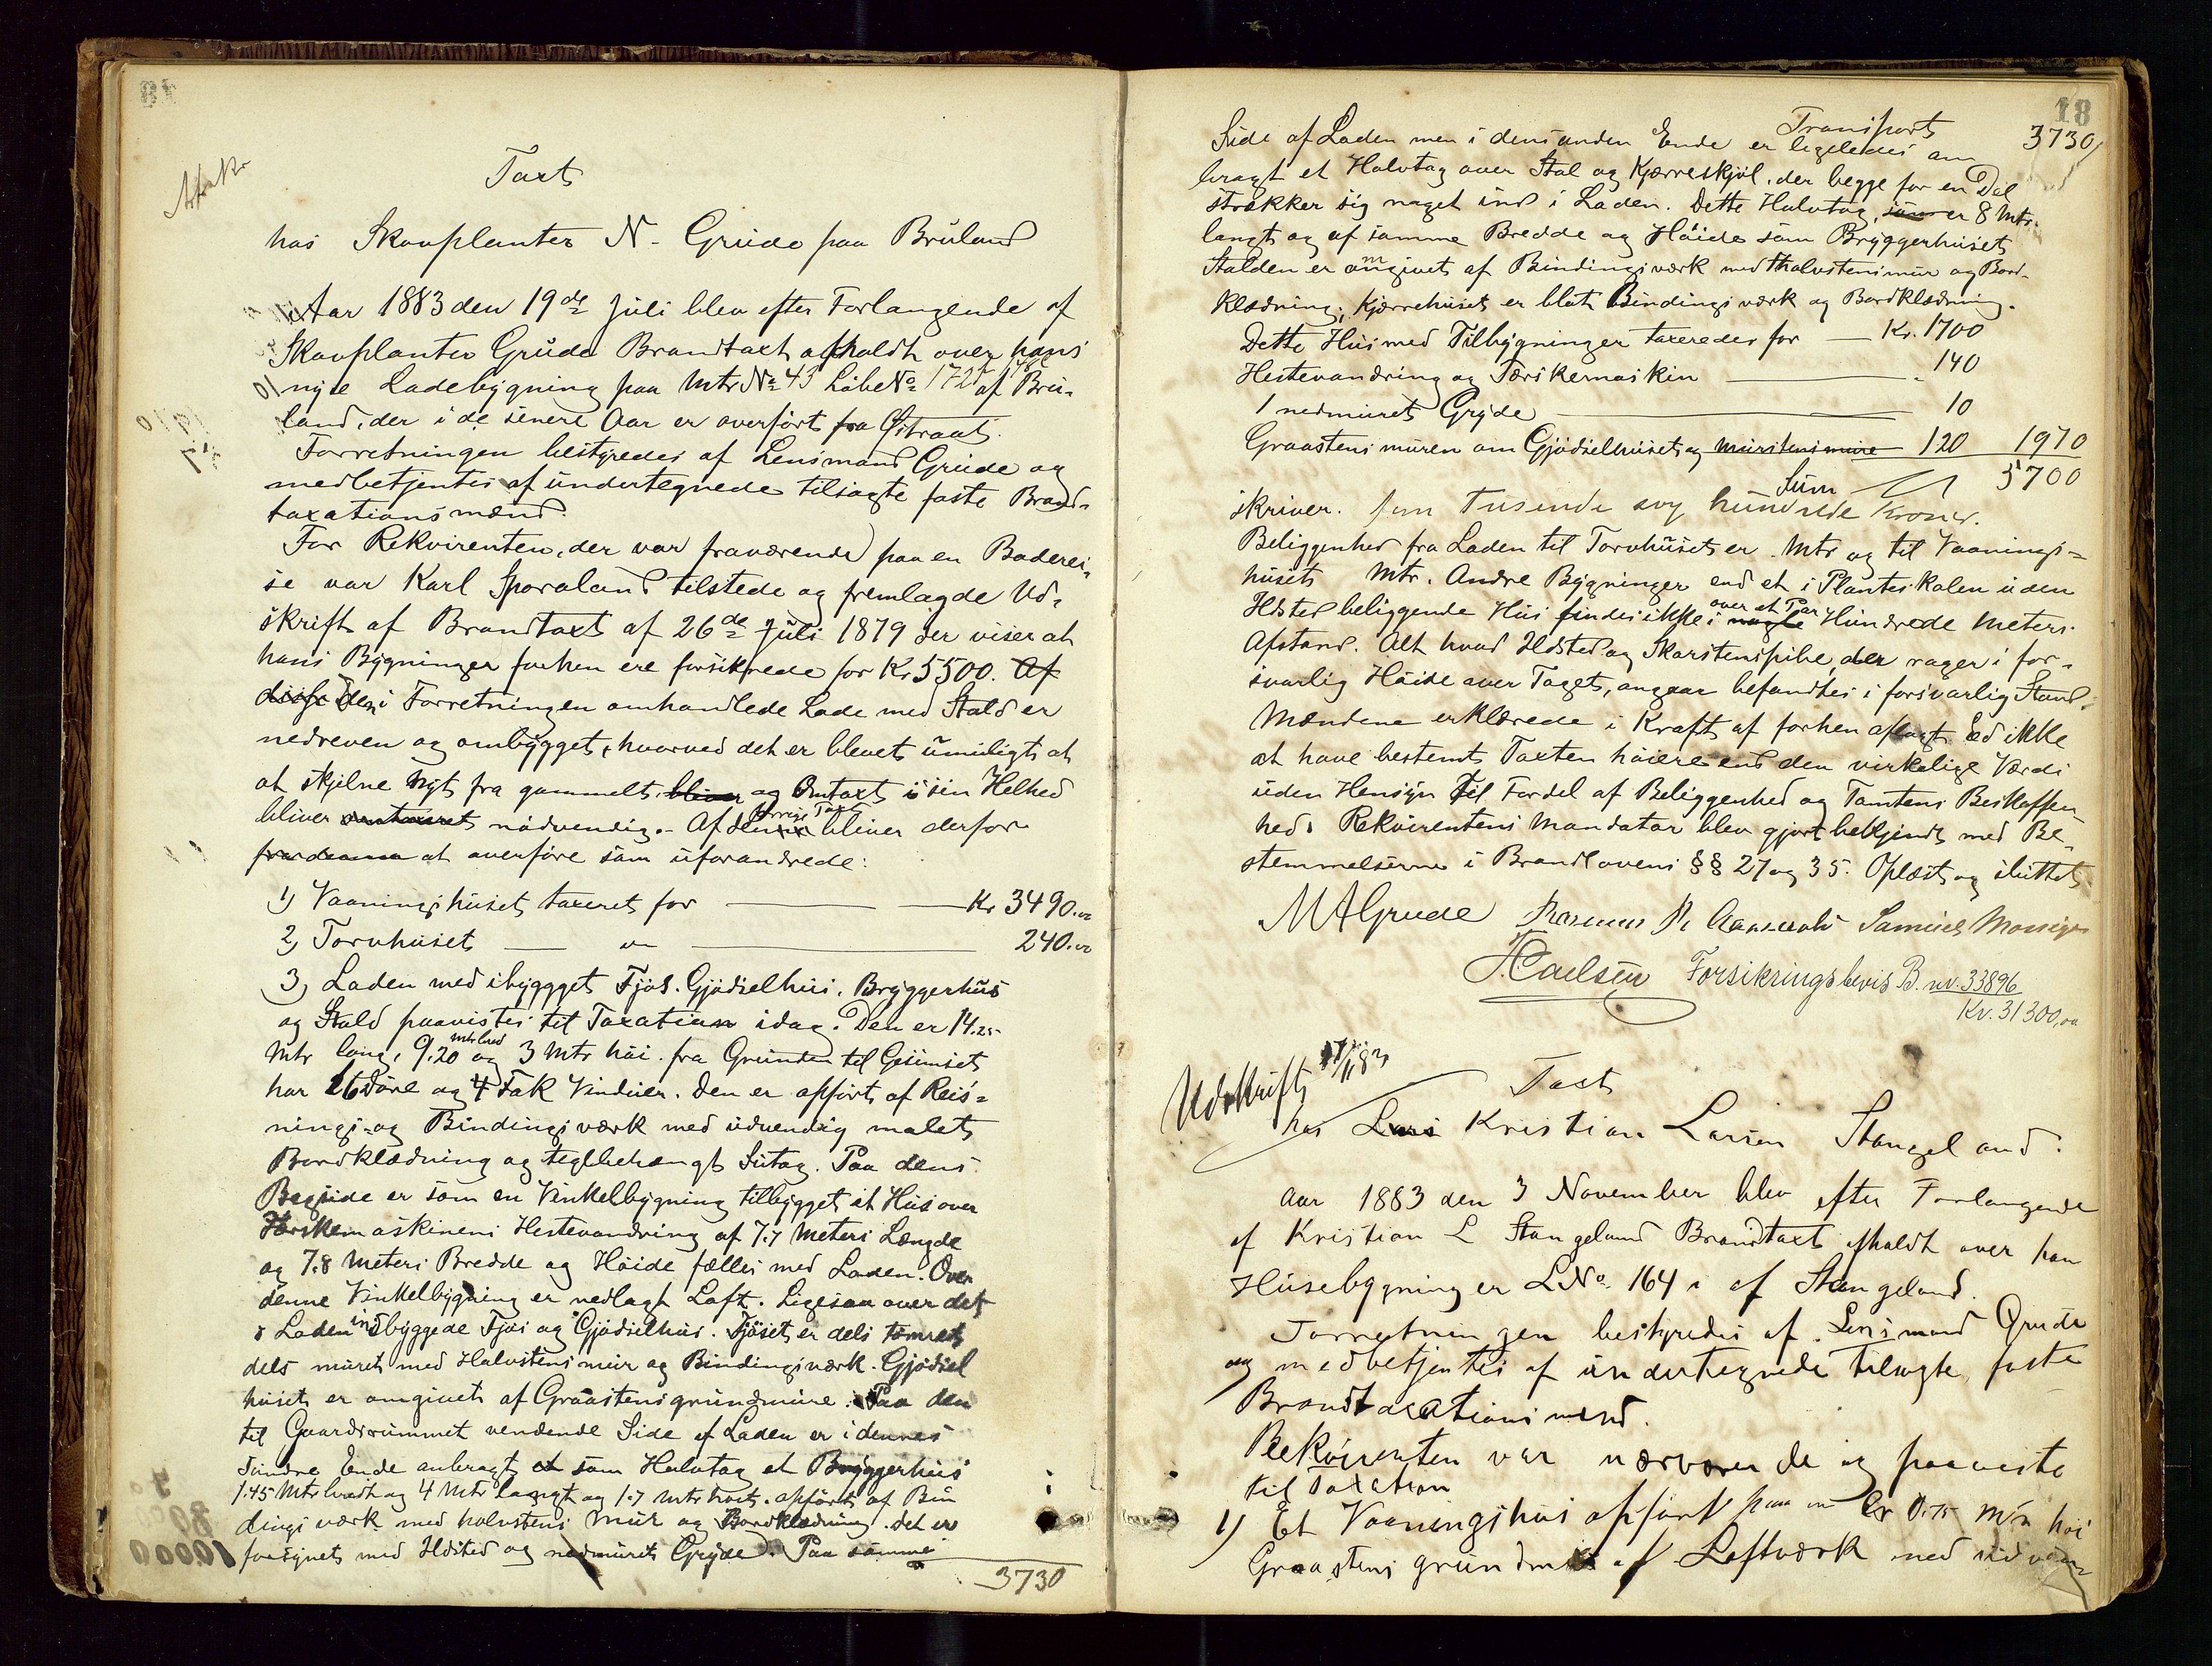 Taxt
hos Skovplanter N. Grude paa Bruland
Aar 1883 den 19de Juli blev efter Forlangende af
Skovplanter Grude Brandtaxt afholdt over hans
nye Ladebygning paa Mtr No 43 Löbe No 172 af Bru-
land, der i de senere Aar er overfört fra Östraat.
Forretningen bestyredes af Lensmand Grude og
medbetjentes af undertegnede tilsagte faste Brand-
taxationsmænd.
For Rekvirenten, der var fraværende paa en Baderei-
se var Karl Sporaland tilstede og fremlagde Ud-
skrift af Brandtaxt af 26de Juli 1879 der viser at
hans Bygninger forhen ere forsikrede for Kr 5500. Af
disse Den i Forretningen omhandlede Lade med Stald er
nedreven og ombygget, hvorved det er blevet umuligt at
at skjelne Nyt fra gammelt, bliver og Omtaxt i sin Helhed
bliver omtaxeret nödvendig. Af forrige Taxt bliver derfor
fra denne at overföre som uforandrede:
1) Vaaningshuset taxeret for Kr 3490.00
2) Torvhuset " 240.00
3) Laden med ibyggget Fjös. Gjödselhus. Bryggerhus
og Stald paavistes til Taxation idag. Den er 14.25
Mtr lang, 9.20 mtr bred og 3 Mtr höi fra Grunden til Gesimset
har 16 Döre og 4 Fak Vinduer. Den er opfört af Reis-
nings- og Bindingsværk med udvendig malet
Bordklædning og teglbehængt Sutag. Paa dens
Bagside er som en Vinkelbygning tilbygget et Hus over
Tærskemaskinens Hestevandring af 7.7 Meters Længde
og 7.8 Meters Bredde og Höide fælles med Laden. Over
denne Vinkelbygning er nedlagt Loft. Ligesaa over det
i Laden indbyggede Fjös og Gjödselhus. Fjöset er dels tömret
dels muret med Halvstensmur og Bindingsværk. Gjödsel
huset er omgivet af Graastensgrundmure. Paa den
til Gaardsrummet vendende Side af Laden er i dennes
söndre Ende anbragt et som Halvtag et Bryggerhus
1.45 Mtr bredt og 4 Mtr langt og 1.7 mtr höit. opfört af Bin
dingsværk med halvstens Mur og Bordklædning. det er
forsynet med Ildsted og nedmuret Gryde. Paa samme
3730
18
Transport 3730
Side af Laden men i dens anden Ende er ligeledes an
bragt et Halvtag over Stal og Kjærreskjöl, der begge for en Del
strækker sig noget ind i Laden. Dette Halvtag, som er 8 Mtr.
langt og af samme Bredde og Höide som Bryggerhuset
Stalden er omgivet af Bindingsværk med Halvstensmur og Bord-
klædning, Kjærrehuset er blot Bindingsværk og Bordklædning.
Dette Hus med Tilbygninger taxeredes for Kr. 1700
Hestevandring og Tærskemaskin 140
1 nedmuret Gryde 10
Graastensmuren om Gjödselhuset og murstensmure 120 1970
Sum 5700
skriver. fem Tusende syv hundrede Kroner.
Beliggenhed fra Laden til Torvhuset er Mtr og til Vaanings-
huset Mtr. Andre Bygninger end et i Planteskolen uden
Ildsted beliggende Hus findes ikke i nogle over et Par Hundrede Meters
Afstand. Alt hvad Ildsted og Skorstenspibe, der rager i for-
svarlig Höide over Taget, angaar befandtes i forsvarlig Stand.
Mændene erklærede i Kraft af forhen aflagt Ed ikke
at have bestemt Taxten höiere end den virkelige Værdi
uden Hensyn til Fordel af Beliggenhed og Tomtens Beskaffen
hed. Rekvirentens Mandatar blev gjort bekjendt med Be-
stemmelserne i Brandlovens §§ 27 og 35. Oplæst og sluttet
MAGrude Samuel
Forsikringsbevis B. nr. 33896
Kr. 31300,00
Udskrift 83
Taxt
hos Lars Kristian Larsen Stangeland.
Aar 1883 den 3 November blev efter Forlangende
af Kristian L Stangeland Brandtaxt afholdt over han
Husebygninger LNo 164 af Stangeland.
Forretningen bestyredes af Lensmand Grude
og medbetjentes af undertegnede tilsagte faste
Brandtaxationsmænd.
Rekvirenten var nærværende og paaviste
til Taxation
1) Et Vaaningshus opfört paa en 0.75 höi
Graastens grundmur af Loftværk med udven-